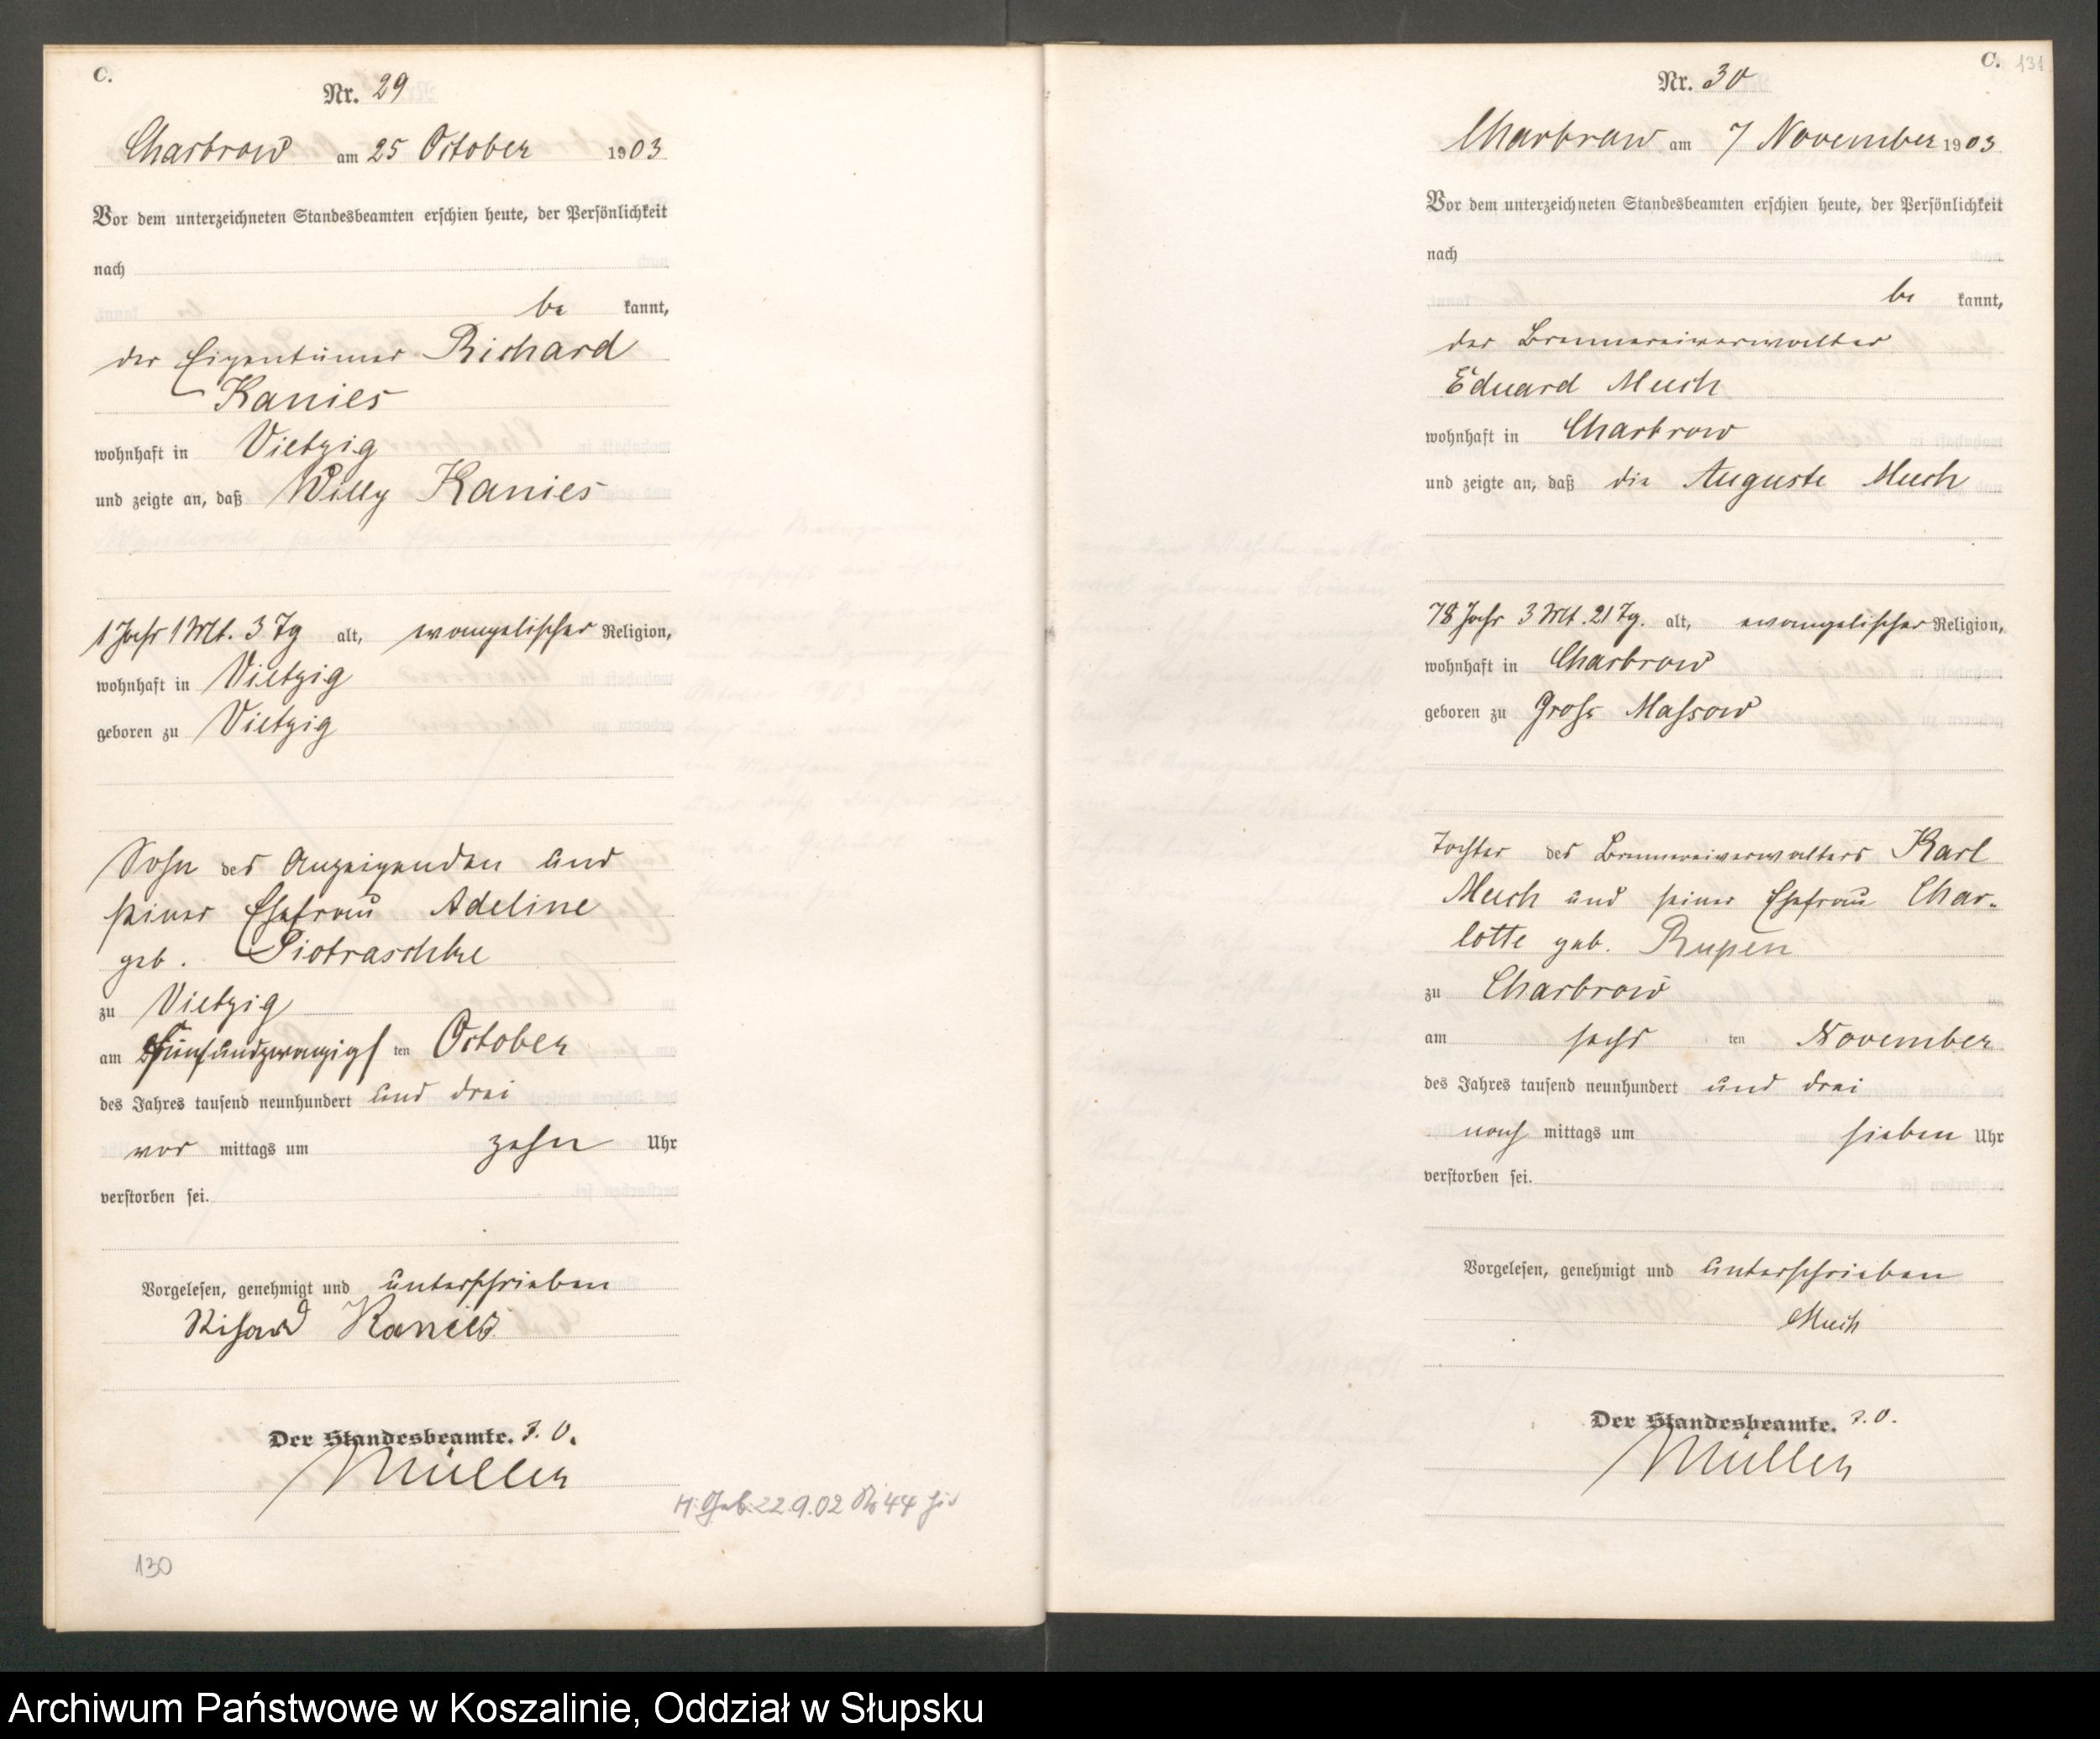 C.
Nr. 29
Charbrow am 25 October 1903
Vor dem unterzeichneten Standesbeamten erschien heute, der Persönlichkeit
nach
be kannt,
der Eigentümer Richard
Kanies
wohnhaft in Vietzig
und zeigte an, daß Willy Kanies
1 Jahr 1 Mt. 3 Tg alt, evangelischer Religion,
wohnhaft in Vietzig
geboren zu Vietzig
Sohn des Anzeigenden und
seiner Ehefrau Adeline
geb. Piotraschke
zu Vietzig
am fünfundzwanzigs ten October
des Jahres tausend neunhundert und drei
vor mittags um zehn Uhr
verstorben sei.
Vorgelesen, genehmigt und unterschrieben
Richard Kanies
Der Standesbeamte. J. V.
Müller
H: Geb. 22.9.02 No 44 hier
130
C. 131
Nr. 30
Charbrow am 7 November 1903
Vor dem unterzeichneten Standesbeamten erschien heute, der Persönlichkeit
nach
be kannt,
der Brennereiverwalter
Eduard Much
wohnhaft in Charbrow
und zeigte an, daß die Auguste Much
78 Jahr 3 Mt. 21 Tg. alt, evangelischer Religion,
wohnhaft in Charbrow
geboren zu Gross Massow
Tochter des Brennereiverwalters Karl
Much und seiner Ehefrau Char-
lotte geb. Rupen
zu Charbrow
am sechs ten November
des Jahres tausend neunhundert und drei
nach mittags um sieben Uhr
verstorben sei.
Vorgelesen, genehmigt und unterschrieben
Much
Der Standesbeamte. J. V.
Müller
Archiwum Państwowe w Koszalinie, Oddział w Słupsku